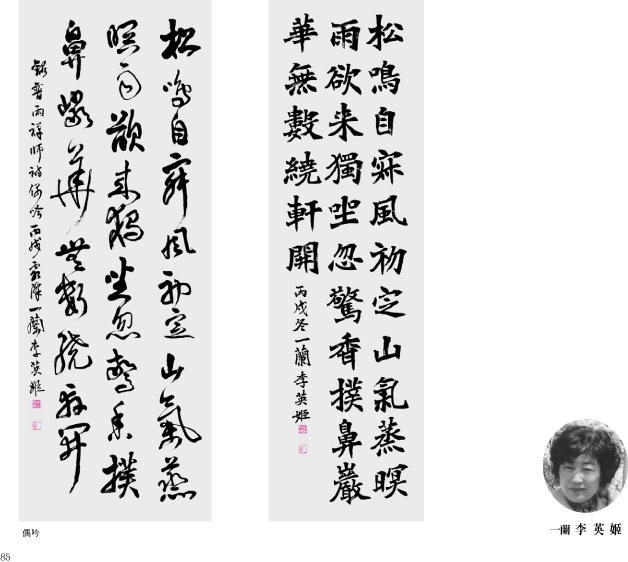 松鳴自寂風初定山氣蒸
暝雨欲来獨坐忽驚香撲
鼻巖華無數繞軒開
錄普雨禪師詩偶吟 丙戌霜降 一蘭李英姬
松鳴自寂風初定山氣蒸暝
雨欲来獨坐忽驚香撲鼻巖
華無數繞軒開
丙戌冬一蘭李英姬
偶吟
一蘭 李英姬
85